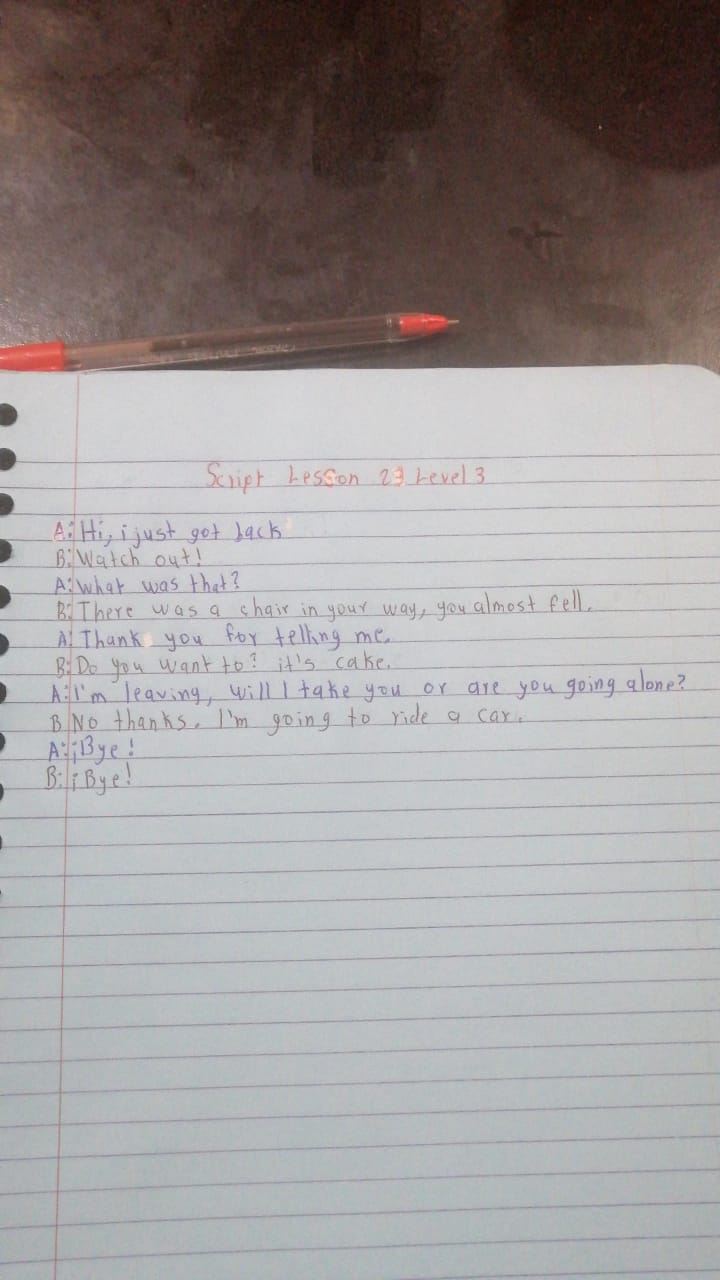 Script Lesson 23 Level 3
A: Hi, i just got back
B: Watch out!
A: What was that?
B: There was a chair in your way, you almost fell.
A: Thank you for telling me.
B: Do you want to? it's cake.
A: I'm leaving, will I take you or are you going alone?
B No thanks. I'm going to ride a car.
A: ¡Bye!
B: ¡Bye!